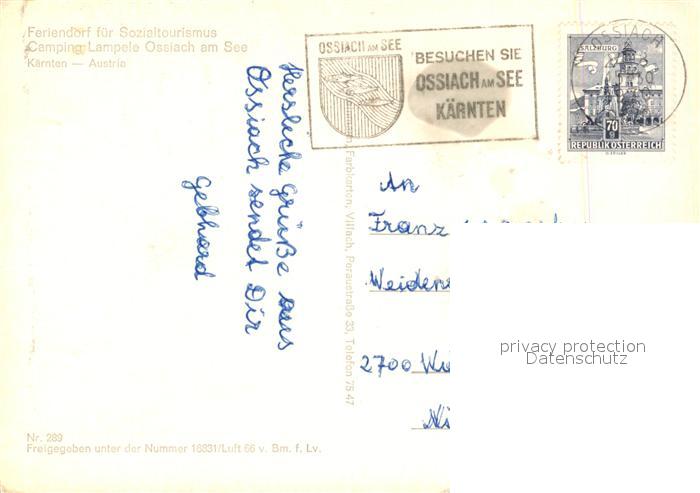 Feriendorf für Sozialtourismus
Camping Lampele Ossiach am See
Kärnten — Austria
OSSIACH AM SEE
BESUCHEN SIE
OSSIACH AM SEE
KÄRNTEN
OSSIACH
SALZBURG
70 g
REPUBLIK ÖSTERREICH
Herzliche Grüße aus
Ossiach sendet Dir
Gebhard
Farbkarton, Villach, Peraustraße 33, Telefon 75 47
An
Franz
2700
privacy protection
Datenschutz
Nr. 289
Freigegeben unter der Nummer 16831/Luft 66 v. Bm. f. Lv.